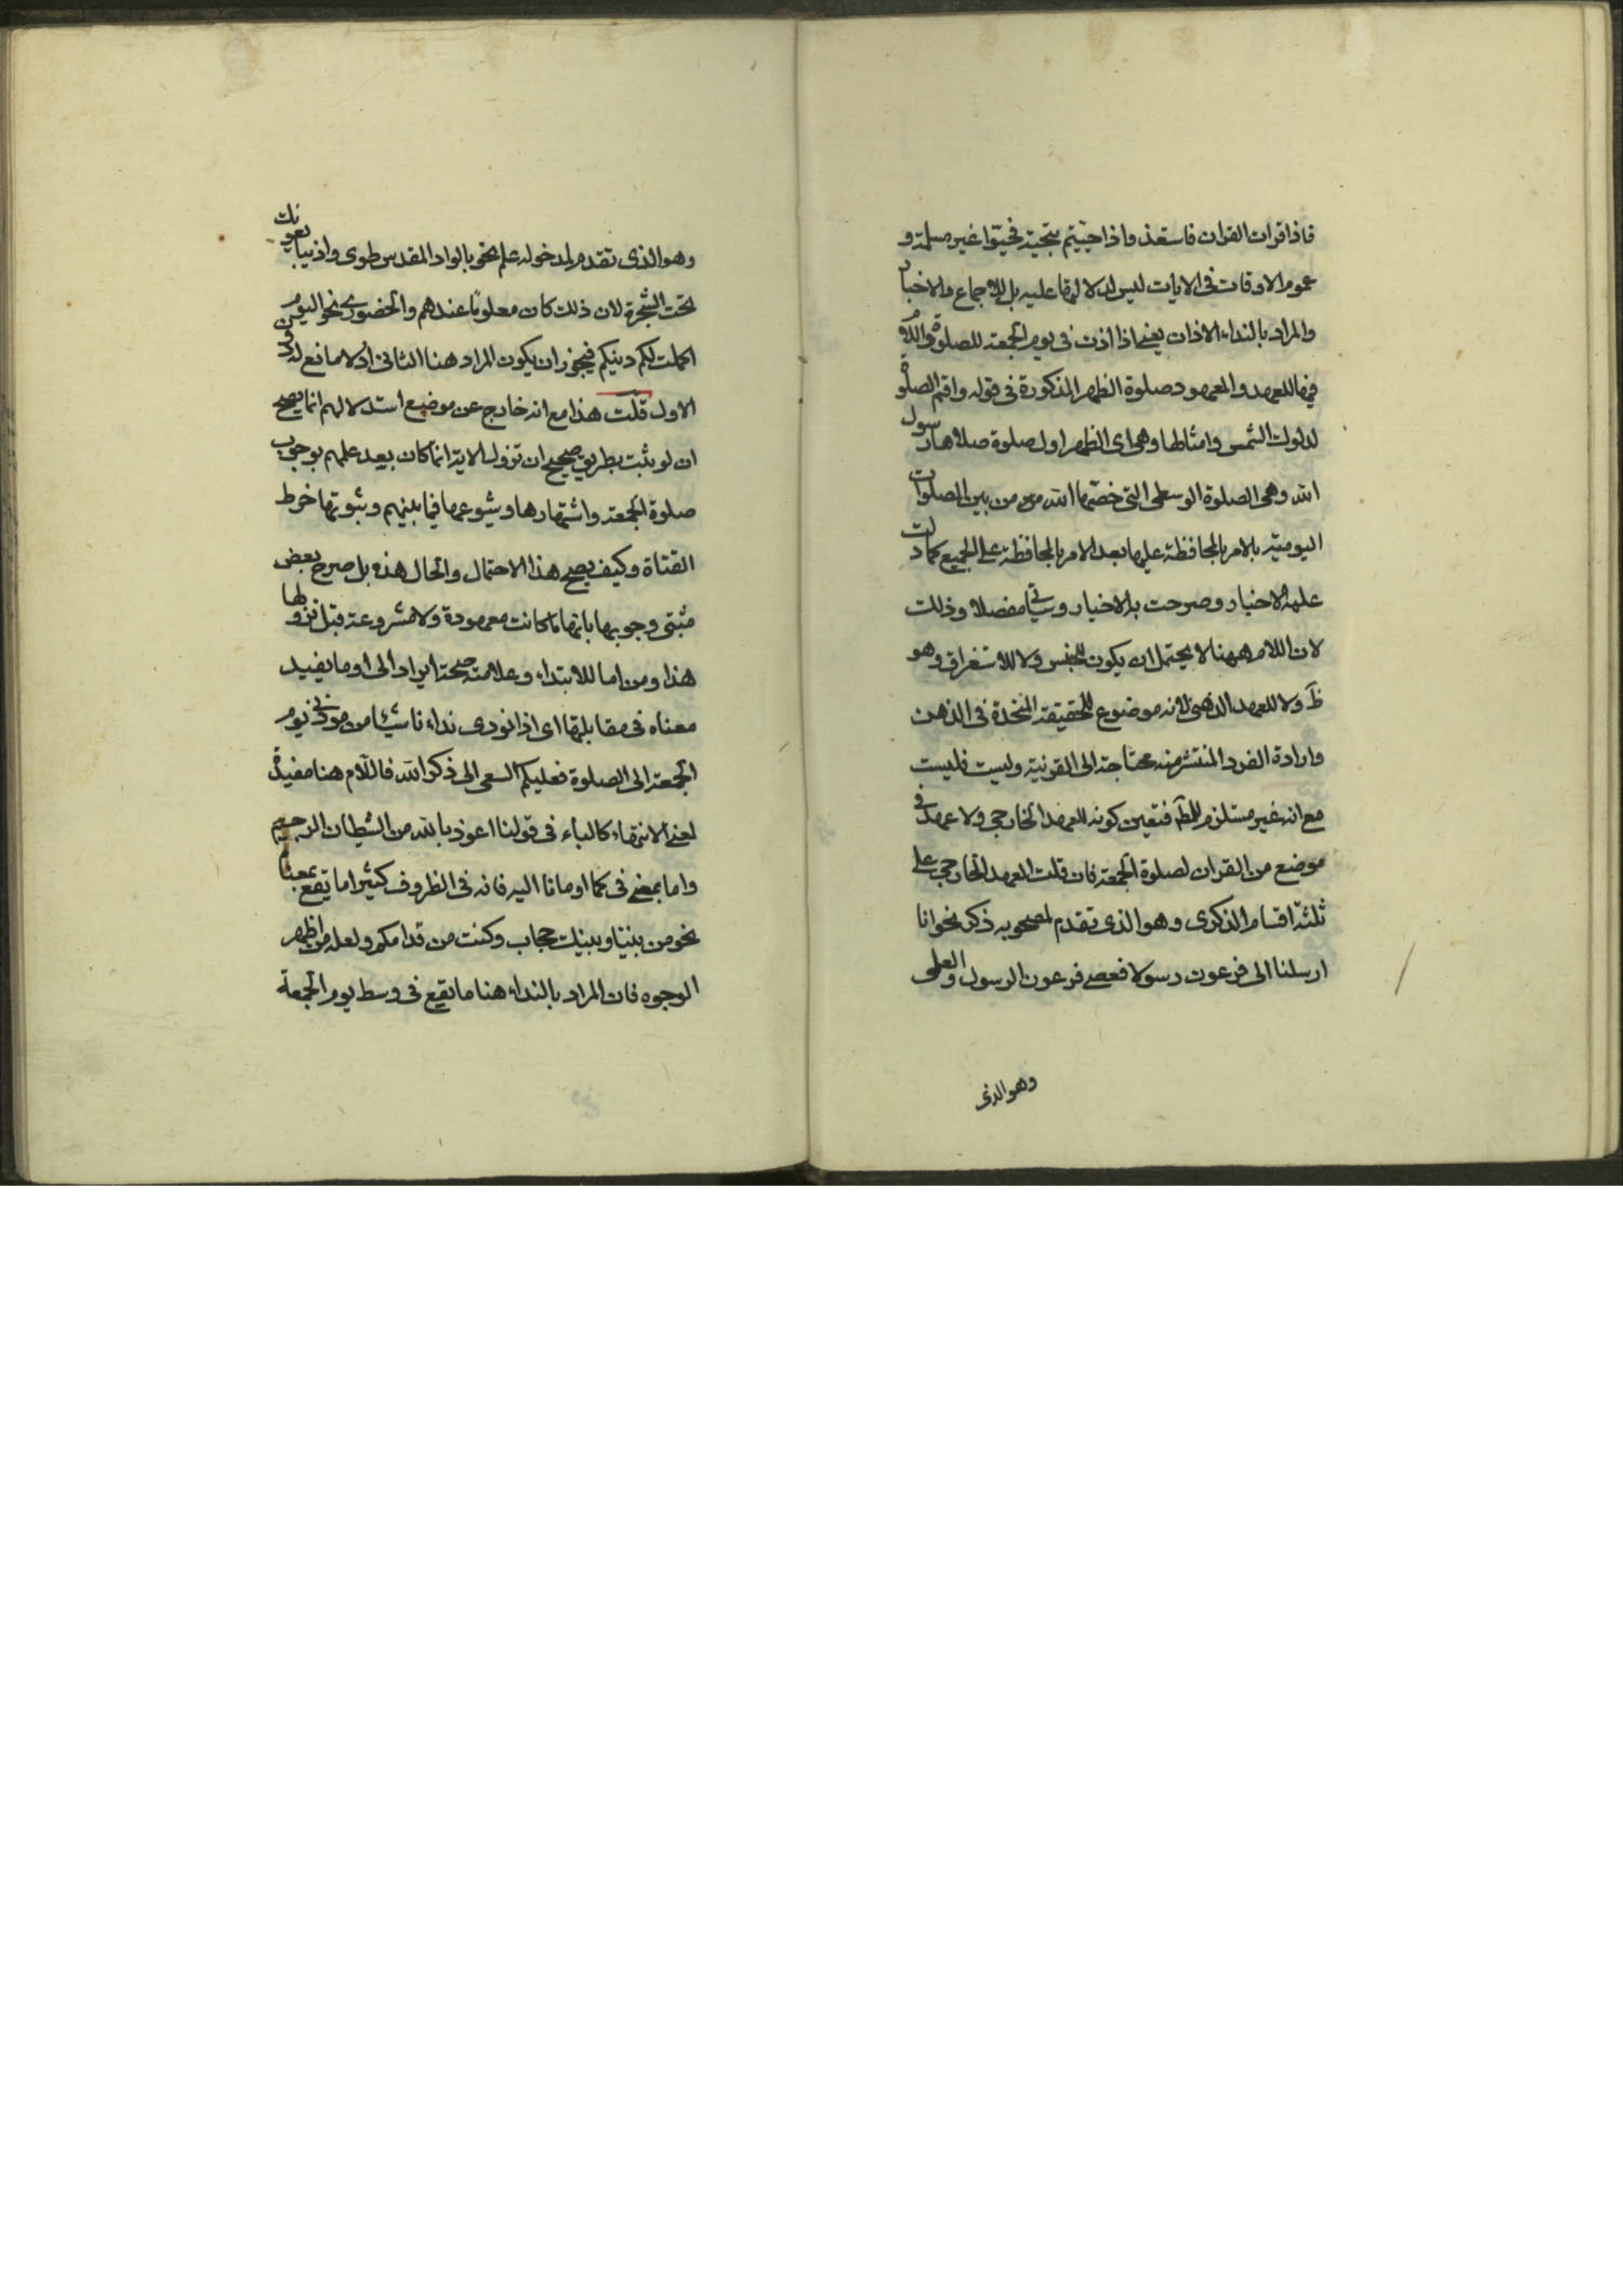 فاذا قرات القران فاستعذ واذا حييتم بتحية فحيوا غير مسلمة و
عموم الاوقات فى الايات ليس لدلالتها عليه بل للاجماع والاخبار
والمراد بالنداء الاذان يعنى اذا اذن فى يوم الجمعة للصلوة واللام
فيها للعهد والمعهود صلوة الظهر المذكورة فى قوله واقم الصلوة
لدلوك الشمس وامثالها وهى اى الظهر اول صلوة صلاها رسول
الله وهى الصلوة الوسطى التى خصها الله من بين الصلوات
اليومية بالامر بالمحافظة عليها بعد الامر بالمحافظة على الجميع كما دلت
عليه الاخبار وصرحت به الاخيار وسياتى مفصلا وذلك
لان اللام ههنا لا يحتمل ان يكون للجنس ولا للاستغراق وهو
ظ ولا للعهد الذهنى لانه موضوع للحقيقة المتخذة فى الذهن
وارادة الفرد المنتشر منه محتاجة الى القرنية وليست فليست
مع انه غير مستلزم للمط فتعين كونه للعهد الخارجى ولا عهد فى
موضع من القران لصلوة الجمعة فان قلت العهد الخارجى على
ثلثة اقسام الذكرى وهو الذى تقدم لمصحوبه ذكر نحو انا
ارسلنا الى فرعون رسولا فعصى فرعون الرسول والعلمى
وهو الذى
وهو الذى تقدم لمدخوله علم نحو بالواد المقدس طوى واذ يبايعونك
تحت الشجرة لان ذلك كان معلوما عندهم والحضورى نحو اليوم
اكملت لكم دينكم فيجوز ان يكون المراد هنا الثانى اذ لا مانع له دون
الاول قلت هذا مع انه خارج عن موضع استدلالهم انما يصح
ان لو ثبت بطريق صحيح ان نزول الاية انما كان بعد علمهم بوجوب
صلوة الجمعة واشتهارها وشيوعها فيما بينهم وثبوتها خرط
القتاة وكيف يصح هذا الاحتمال والحال هذه بل صرح بعض
مثبتى وجوبها بانها ما كانت معهودة ولا مشروعة قبل نزولها
هذا ومن اما للابتداء وعلامته صحة ايراد الى او ما يفيد
معناه فى مقابلتها اى اذا نودى نداء ناشيا من موذنى يوم
الجمعة الى الصلوة فعليكم السعى الى ذكر الله فاللام هنا مفيدة
لمعنى الانتهاء كالباء فى قولنا اعوذ بالله من الشيطان الرجيم
واما بمعنى فى كما اومانا اليه فانه فى الظروف كثيرا ما تقع بمعناه
نحو من بيننا وبينك حجاب وكنت من قدامكم ولعله من اظهر
الوجوه فان المراد بالنداء هنا ما يقع فى وسط يوم الجمعة